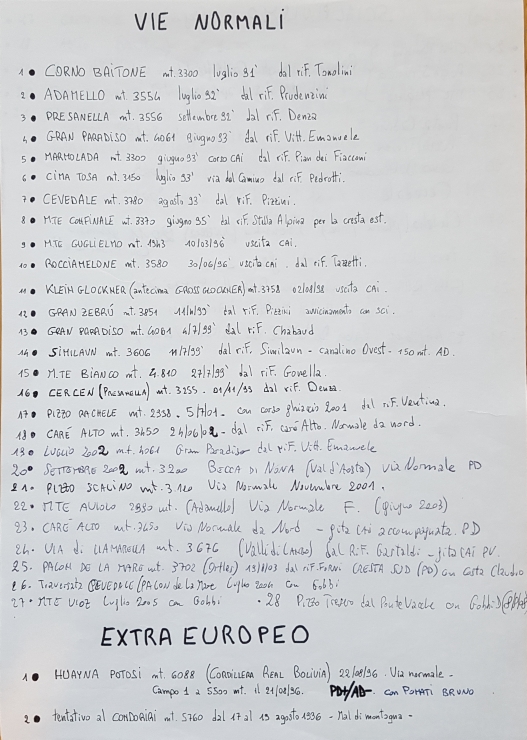 VIE NORMALI
1 • CORNO BAITONE mt. 3300 luglio 91' dal rif. Tonolini
2 • ADAMELLO mt. 3554 luglio 92' dal rif. Prudenzini
3 • PRESANELLA mt. 3556 settembre 92' dal rif. Denza
4 • GRAN PARADISO mt. 4061 giugno 93' dal rif. Vitt. Emanuele
5 • MARMOLADA mt. 3300 giugno 93' corso CAI dal rif. Pian dei Fiacconi
6 • CIMA TOSA mt. 3150 luglio 93' via del Camino dal rif. Pedrotti.
7 • CEVEDALE mt. 3780 agosto 93' dal rif. Pizzini.
8 • M.TE CONFINALE mt. 3370 giugno 95' dal rif. Stella Alpina per la cresta est.
9 • M.TE GUGLIELMO mt. 1943 10/03/96 uscita CAI.
10 • ROCCIAMELONE mt. 3580 30/06/96 uscita CAI. dal rif. Tazzetti.
11 • KLEIN GLOCKNER (antecima GROSSGLOCKNER) mt. 3758 02/08/98 uscita CAI.
12 • GRAN ZEBRÚ mt. 3851 dal rif. Pizzini avvicinamento con sci.
13 • GRAN PARADISO mt. 4061 4/7/99' dal rif. Chabaud
14 • SIMILAUN mt. 3606 11/7/99' dal rif. Similaun - canalino Ovest - 150 mt. AD.
15 • M.TE BIANCO mt. 4.810 27/7/99' dal rif. Gonella.
16 • CERCEN (PRESANELLA) mt. 3255. 01/11/99 dal rif. Denza.
17 • PIZZO RACHELE mt. 2998. 5/7/01 - con corso ghiaccio 2001 dal rif. Ventina.
18 • CARÉ ALTO mt. 3450 24/06/02 - dal rif. caré Alto. Normale da nord.
19 • LUGLIO 2002 mt. 4061 Gran Paradiso dal rif. Vitt. Emanuele
20 • SETTEMBRE 2002 mt. 3200 BECCA DI NONA (Val d'Aosta) via Normale PD
21 • PIZZO SCALINO mt. 3120 Via Normale Novembre 2001.
22. MTE AVIOLO mt. (Adamello) Via Normale F. (Giugno 2003)
23. CARÉ ALTO mt. 3450 Via Normale da Nord - gita CAI accompagnata. PD
24. mt. 3676 (Valli di Lanzo) dal R.F. Gastaldi - gita CAI PV.
25. PALON DE LA MARE mt. 3702 (Ortles) dal rif. FORNI CRESTA SUD (PD) con Costa Claudio
26. Traversata CEVEDALE/PALON de la Mare Luglio 2004 con Gobbi
27. MTE VIOZ Luglio 2005 con Gobbi • 28 Pizzo Tresero dal Ponte Vacche con Gobbi
EXTRA EUROPEO
1 • HUAYNA POTOSI mt. 6088 (CORDILLERA REAL BOLIVIA) 22/08/96. Via normale -
Campo 1 a 5500 mt. il 21/08/96. PD+/AD- con POMATI BRUNO
2 • tentativo al CONDORIRI mt. 5760 dal 17 al 19 agosto 1996 - Mal di montagna -